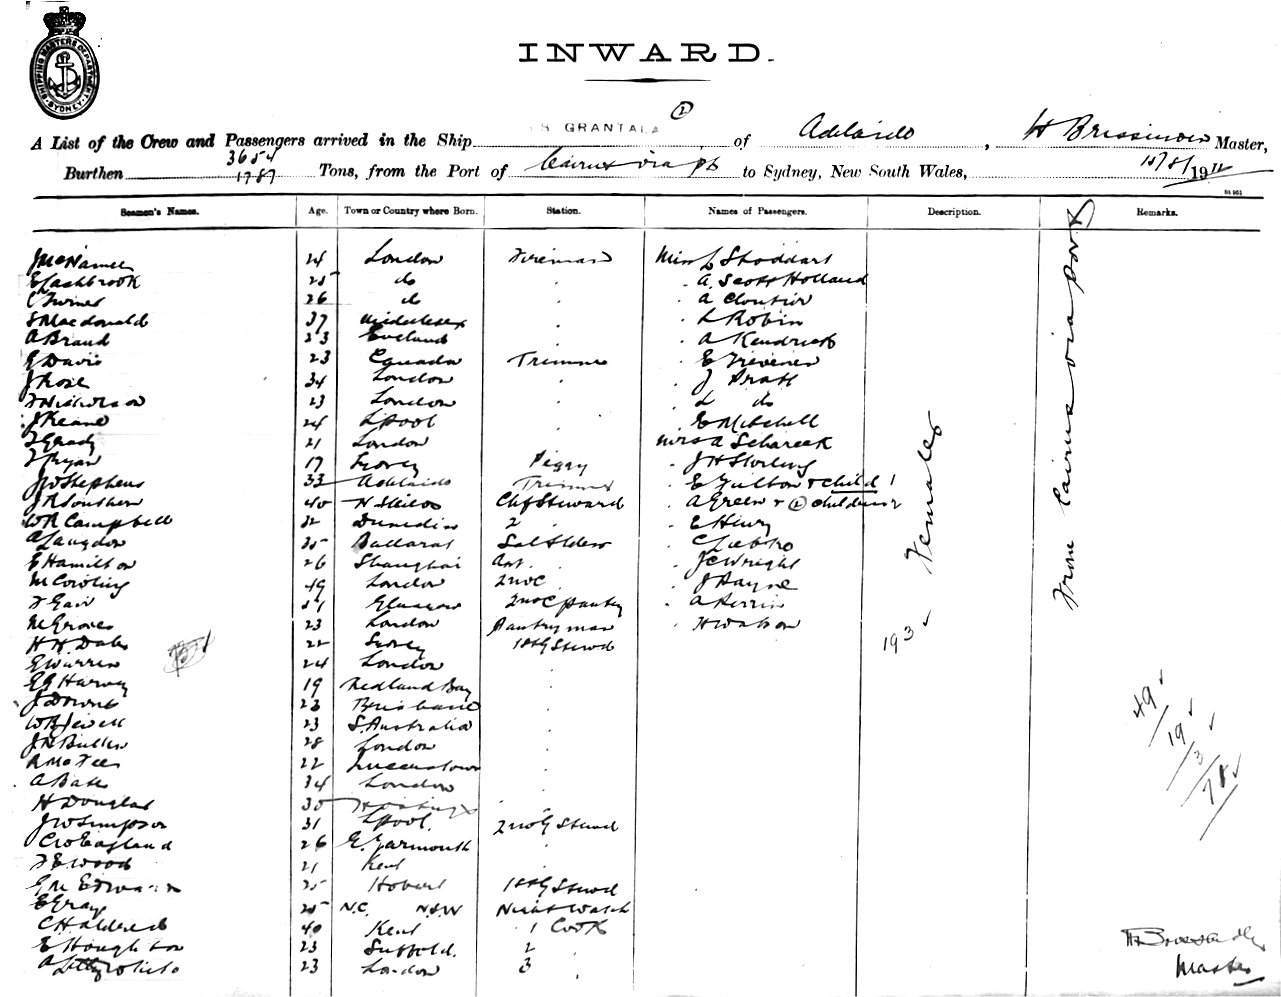 SHIPPING MASTERS DEPARTMENT
SYDNEY
INWARD.
A List of the Crew and Passengers arrived in the Ship S GRANTALA ② of Adelaide, H Master,
Burthen 3654 1787 Tons, from the Port of Cairns via pts to Sydney, New South Wales, 1911
Seamen's Names. Age. Town or Country where Born. Station. Names of Passengers. Description. Remarks.
J McNamee 24 London Fireman Miss L Stoddart
E Lashbrook 25 do " A. Scott Holland
C Turner 26 do " A Cloutier
S Macdonald 37 Middlesex " L Robin
A Brand 23 England " A Kendrick
G Davis 23 Canada Trimmer E Trevener
J Rose 34 London " J Pratt
F Nicholson 23 London " L do
J Keane 24 Lpool " E Mitchell
T Grady 21 London " Mrs A Schareck
T Ryan 17 Sydney Peggy J H Storling
J W Stephens 33 Adelaide Trimmer E Fulton & child 1
J R Southern 40 N Shields Chf Steward A Green & ② children 2
W R Campbell 32 Dunedin 2 " E Henry
A Langdon 35 Ballarat
E Hamilton 26 Shanghai Ast. J C Wright
M Cowling 49 London 2nd C J Payne
F Gair 51 Glasgow 2nd C pantry A Perrin
M Groves 23 London Pantryman H Watson
H H Dales 22 Sydney 1st G Stewd
E Warren 24 London "
E G Harvey 19 Redland Bay "
J Downes 23 Brisbane "
W B Jewell 23 S. Australia "
J H Butler 28 London "
R McFee 22 Queenstown "
A Bates 34 London "
H Douglas 35 Hastings "
J W Simpson 31 Lpool. 2nd G Stewd
C W England 26 G. Yarmouth "
F E Wood 21 Kent "
G M Edwards 25 Hobart 1st G Stewd
E Gray 25 N.C. N.S.W Night Watch
C H Aldred 40 Kent 1 Cook
E Houghton 23 Suffold. 2 "
A 23 London 3 "
193 Females
From Cairns via ports
49
19
3
78
H
Master